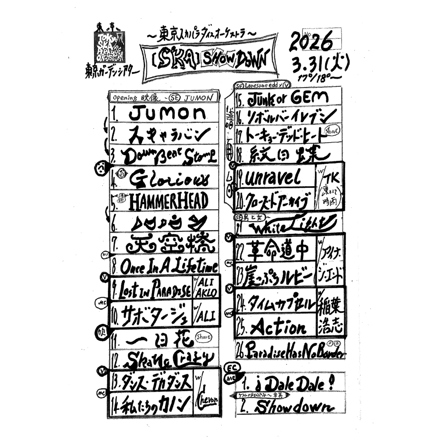 ～東京スカパラダイスオーケストラ～
[SKA] SHOWDOWN
2026
3.31(火)
17°/18°～
東京ガーデンシアター
opening 映像～SE JUMON
1. JUMON
2. スキャラバン
3. DownBeat Stomp
4. Glorious
5. HAMMERHEAD
6.
7. 天空橋
8. Once In A Lifetime
9. Lost In PARADISE w/ALI AKLO
10. サボタージュ w/ALI
11. 一日花
12. Skank Crazy
13. ダンス・デカダンス
14. 私たちのカノン w/Chevon
15. Junk or GEM
16. リボルバーイレブン
17. トーキョーデッドヒート
18. 紋白蝶
19. unravel
20. クローズドアーカイブ
w/TK 凛として時雨
21. White Light
22. 革命道中
23. 崖っぷちルビー
w/アイナ・ジ・エンド
24. タイムカプセル
25. Action
w/稲葉浩志
26. Paradise Has No Border
EC
1. ¡Dale Dale!
2. Showdown